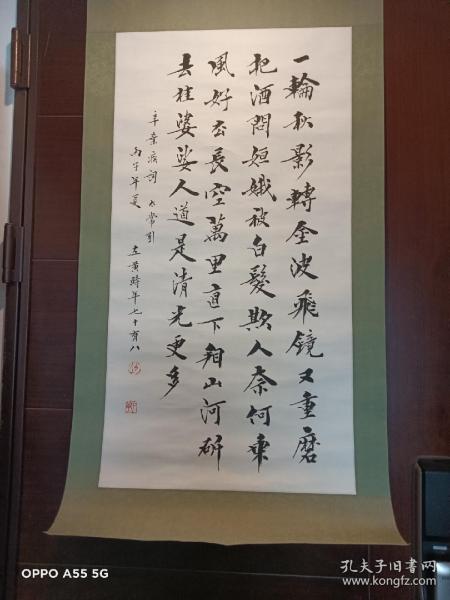 一輪秋影轉金波飛鏡又重磨
把酒問姮娥被白髮欺人奈何乘
風好去長空萬里直下看山河斫
去桂婆娑人道是清光更多
辛棄疾詞 太常引
丙午年夏 時年七十有八
OPPO A55 5G
孔夫子旧书网
www.kongfz.com